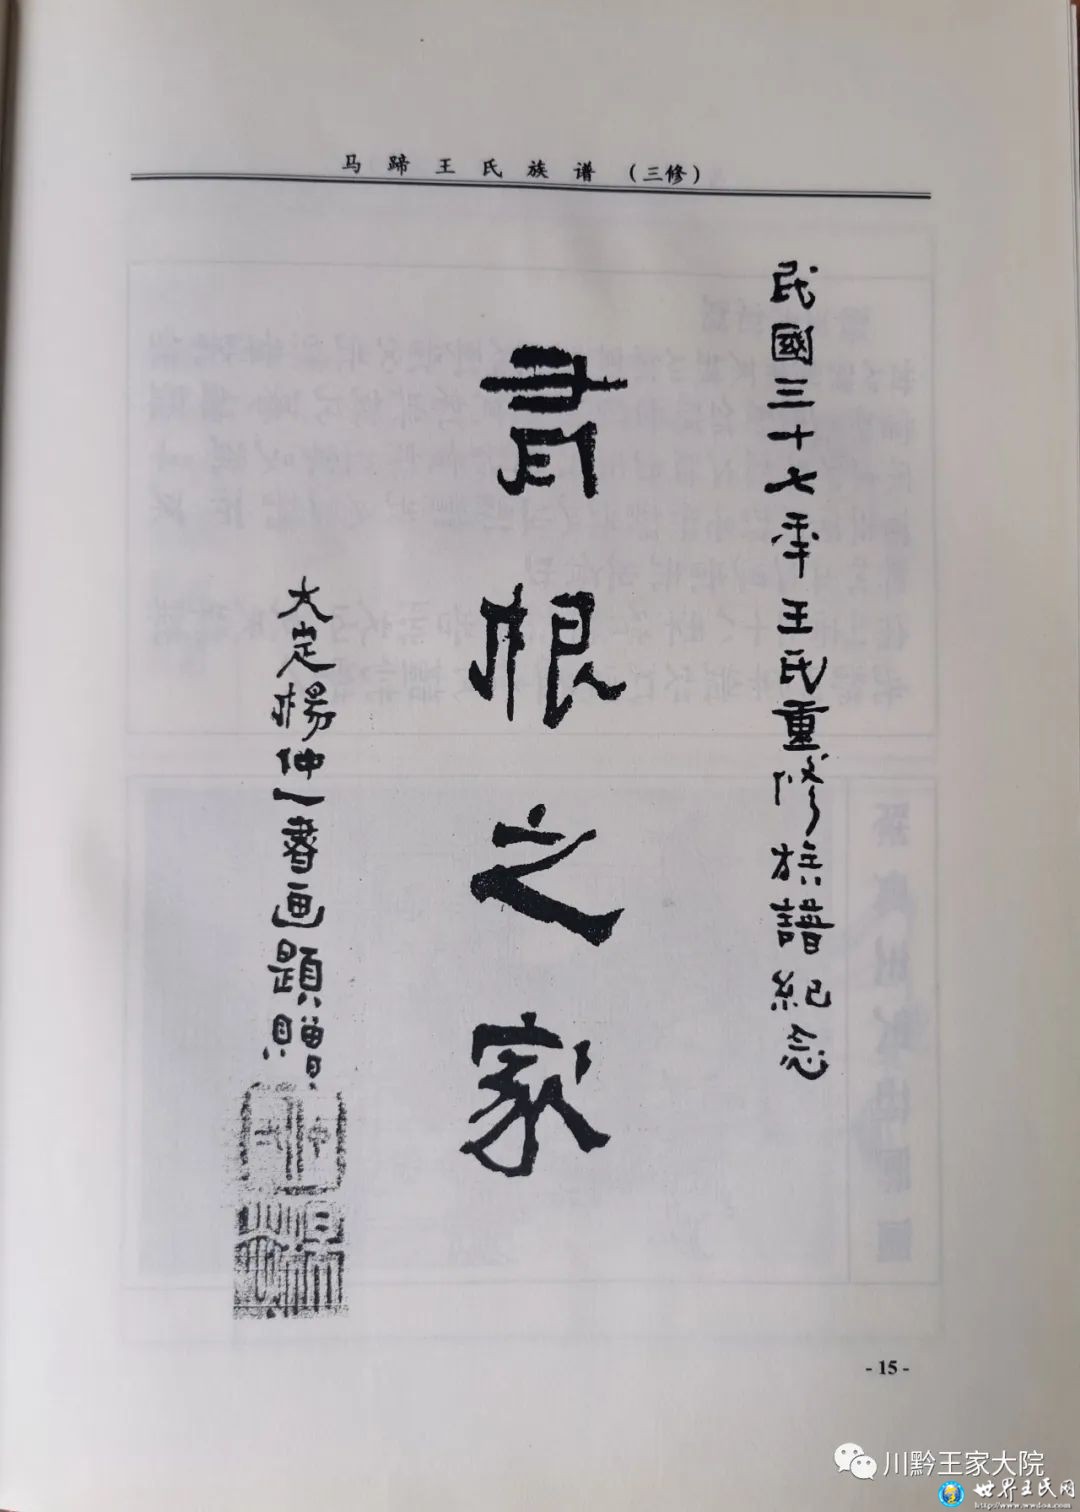 马蹄王氏族谱（三修）
民國三十七年王氏重修族譜紀念
有根之家
大定楊仲一書画題贈
- 15 -
川黔王家大院
世界王氏网
http://www.wwdoa.com